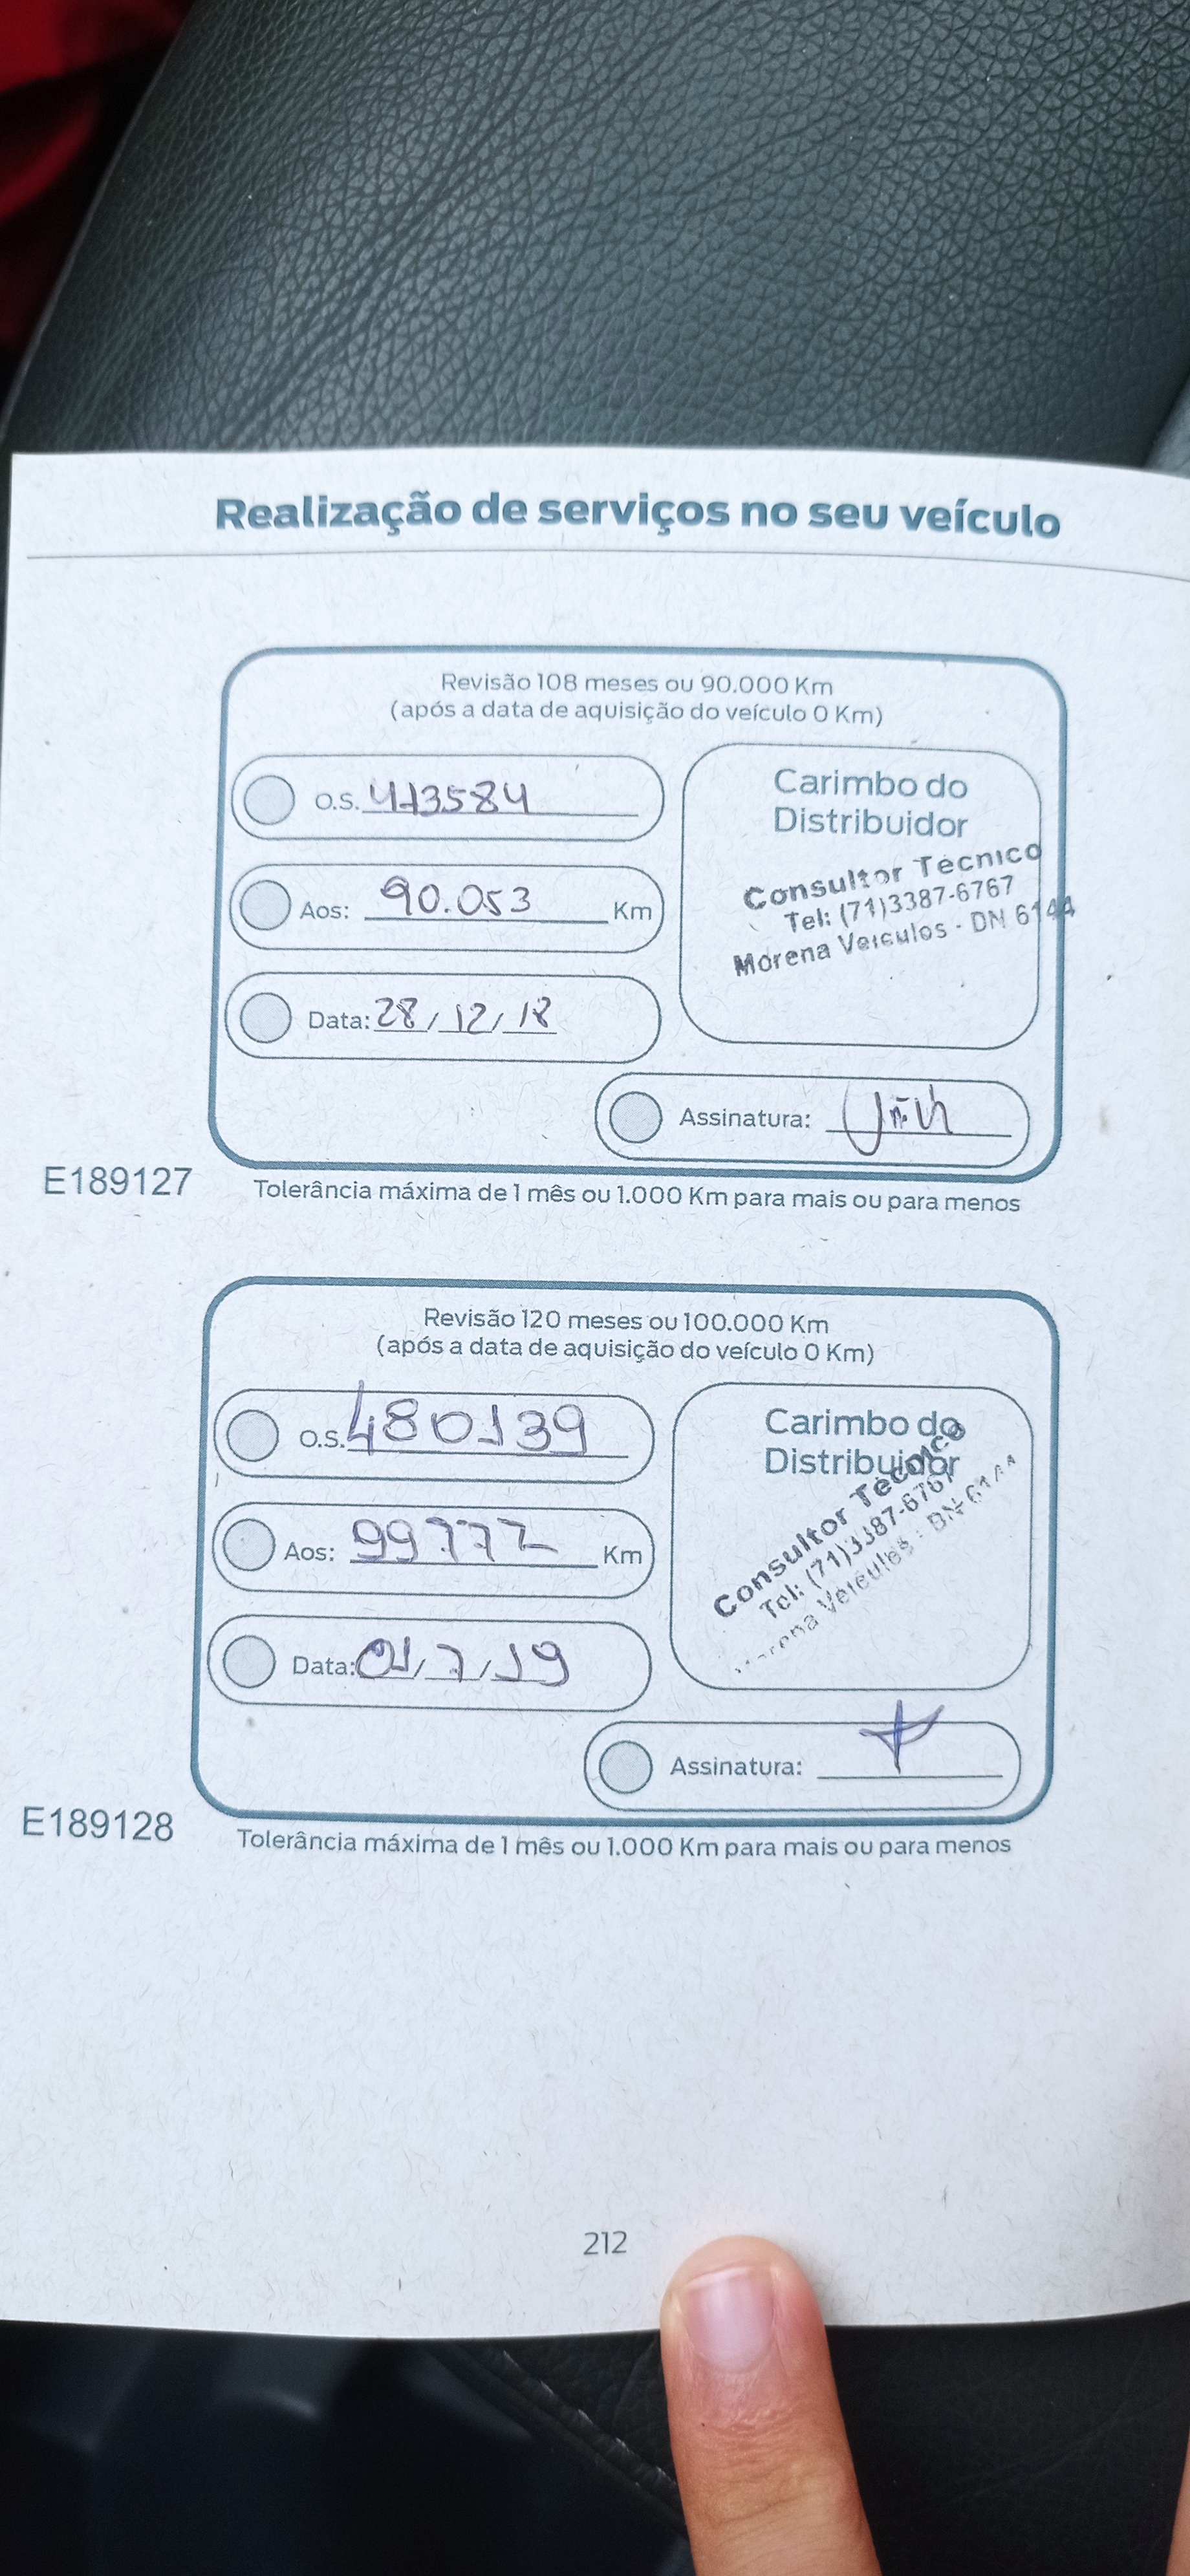 Realização de serviços no seu veículo
Revisão 108 meses ou 90.000 Km
(após a data de aquisição do veículo 0 Km)
O.S. 473584
Aos: 90.053 Km
Data: 28/12/18
Carimbo do
Distribuidor
Consultor Técnico
Tel: (71)3387-6767
Morena Veículos - DN 6144
Assinatura:
E189127
Tolerância máxima de 1 mês ou 1.000 Km para mais ou para menos
Revisão 120 meses ou 100.000 Km
(após a data de aquisição do veículo 0 Km)
O.S. 480139
Aos: 99777 Km
Data: 01/7/19
Carimbo do
Distribuidor
Consultor Técnico
Tel: (71)3387-6767
Morena Veículos - DN 6144
Assinatura:
E189128
Tolerância máxima de 1 mês ou 1.000 Km para mais ou para menos
212